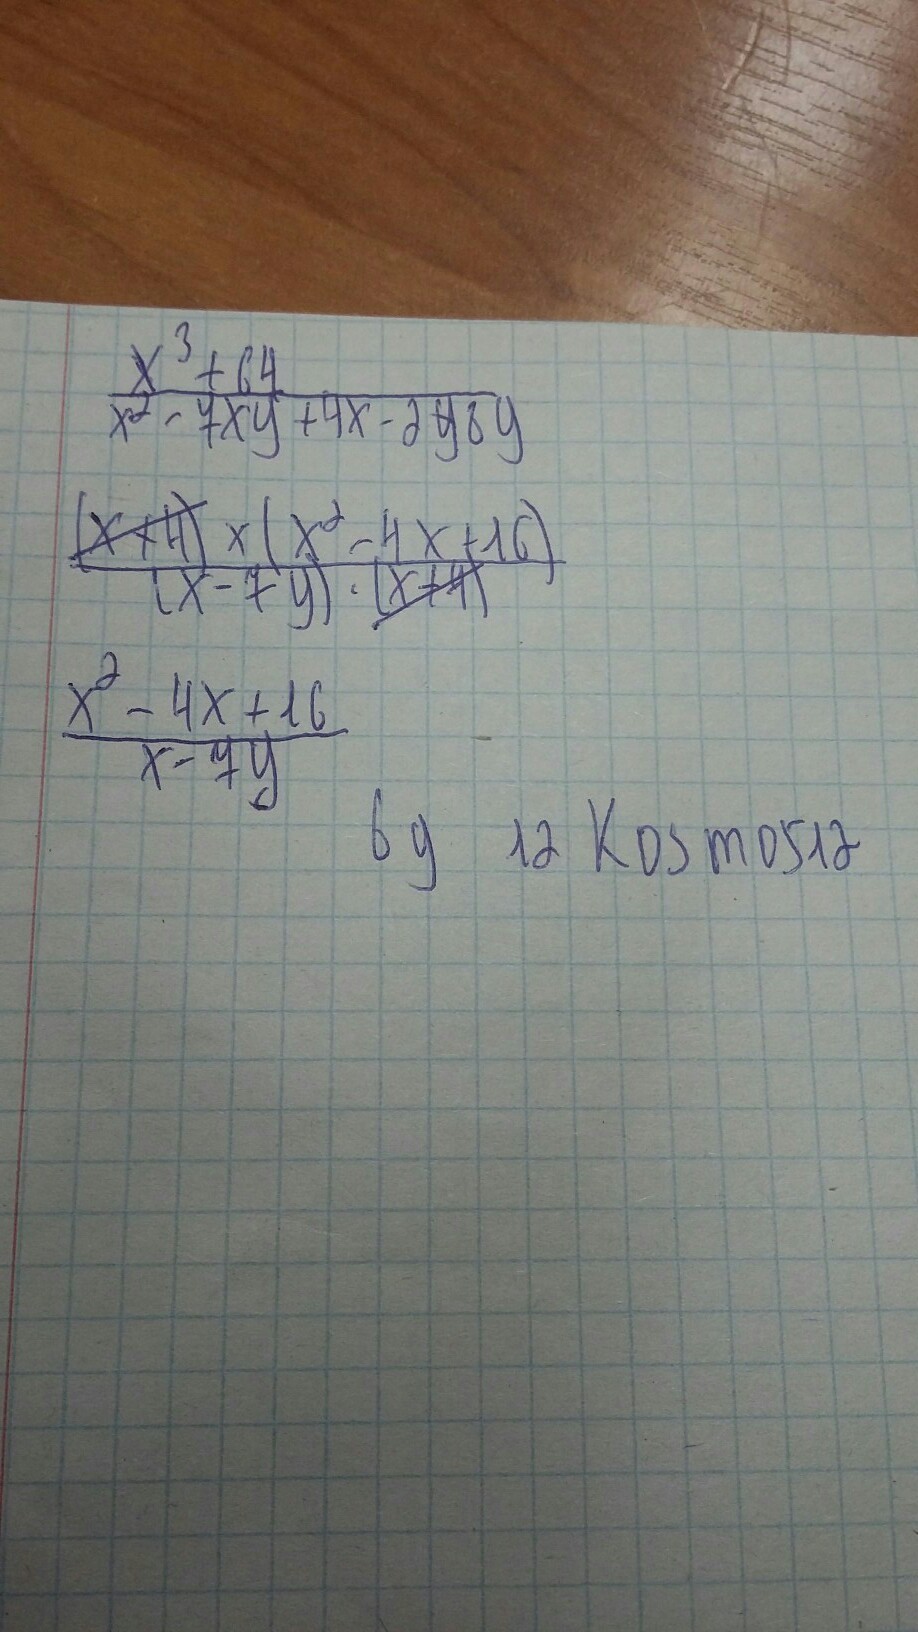 x³+64
x²-7xy+4x-28y
(x+4) x (x²-4x+16)
(x-7y)·(x+4)
x²-4x+16
x-7y
by 12 Kosmos12